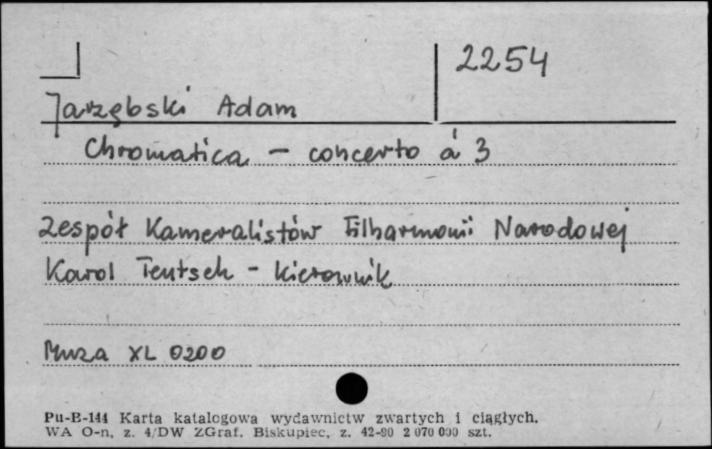 2254
Jarzębski Adam
Chromatica - concerto á 3
Zespół Kameralistów Filharmonii Narodowej
Karol Teutsch - kierownik
Muza XL 0200
Pu-B-144 Karta katalogowa wydawnictw zwartych i ciągłych.
WA O-n, z. 4/DW ZGraf. Biskupiec, z. 42-80 2 070 000 szt.